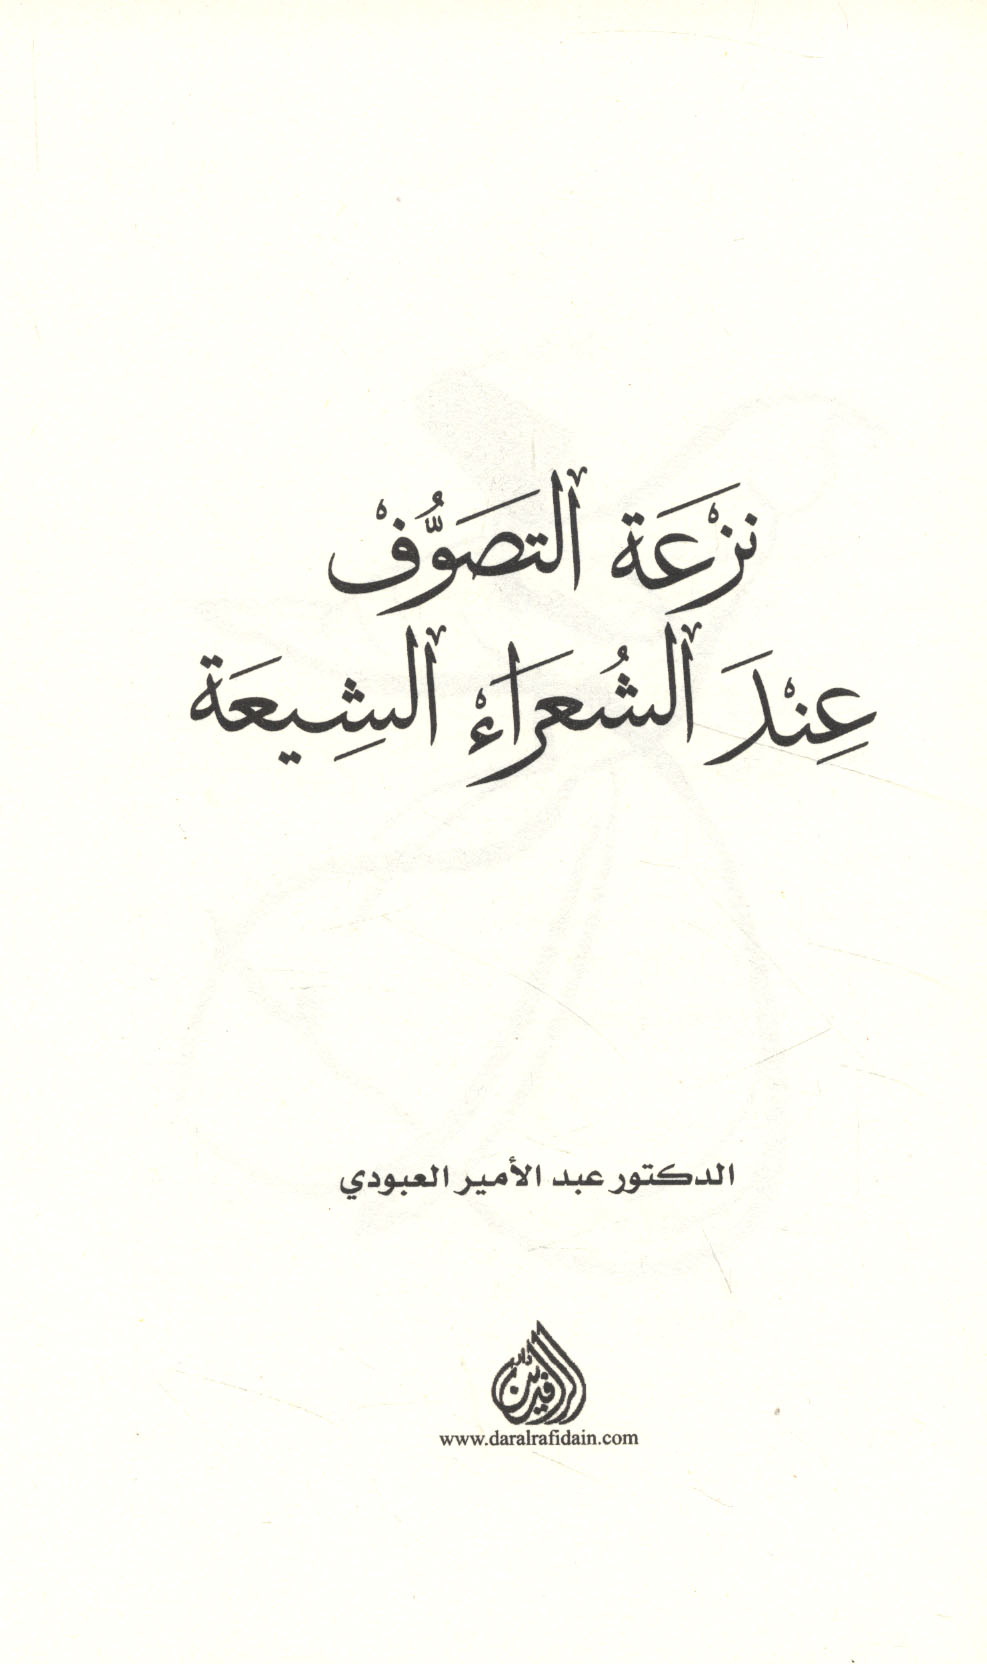 نزْعَة التصَوُّفْ
عِنْدَ الشُعَرَاءْ الشِيعَة
الدكتور عبد الأمير العبودي
دار الرافدين
www.daralrafidain.com